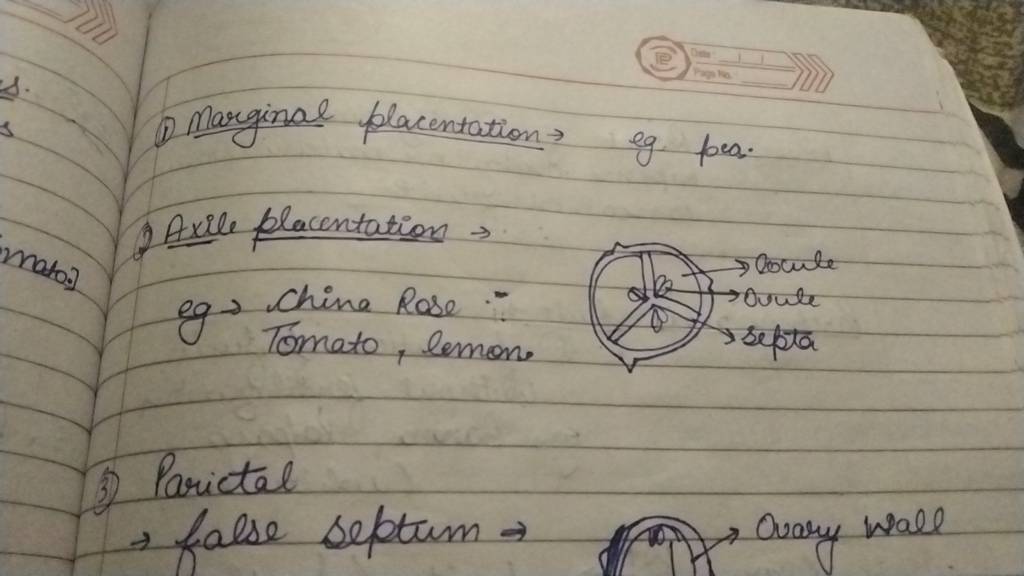 Date :
Page No.
s.
s
① Marginal placentation → eg pea.
② Axile placentation →
→ Locule
mato.]
eg → China Rose
→ Ovule
Tomato, lemon.
→ Septa
③ Parietal
→ false septum →
→ Ovary wall